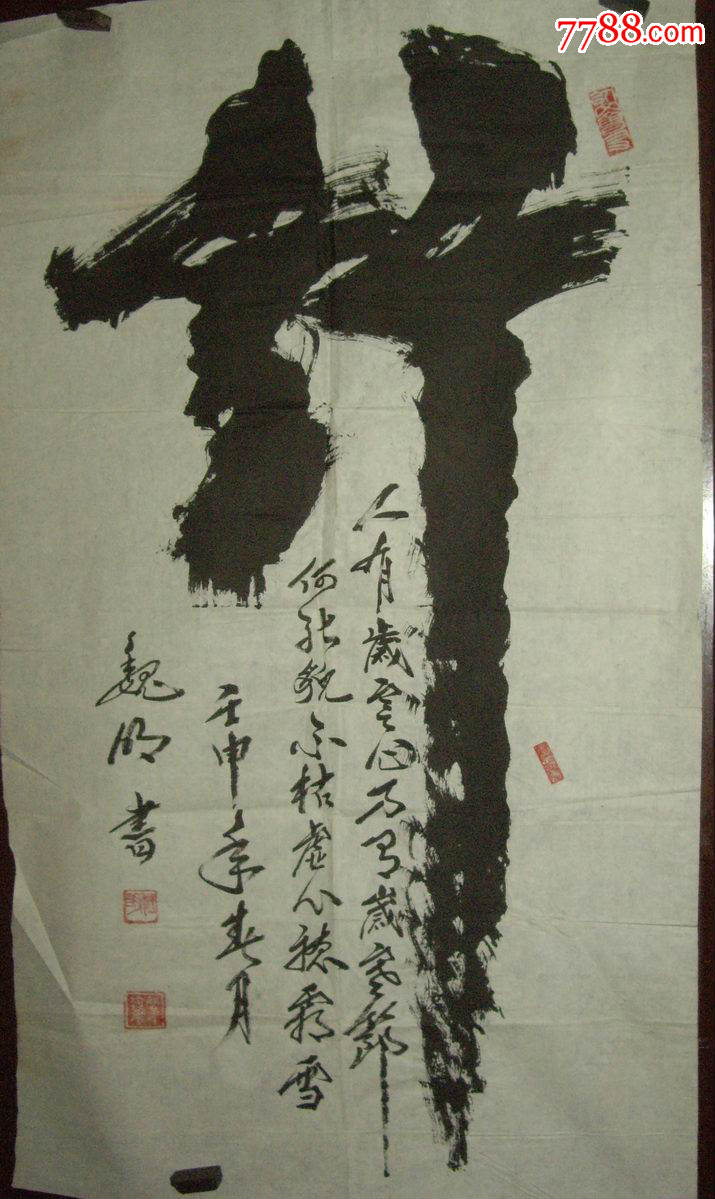 7788.com
竹
人有歲寒心乃有歲寒節
何能貌不枯虚心聽霜雪
壬申年春月
魏明書